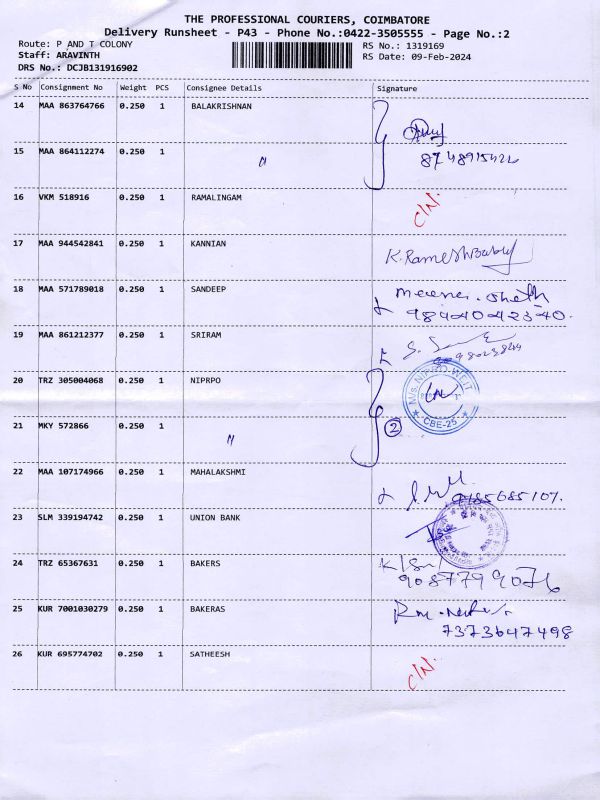 THE PROFESSIONAL COURIERS, COIMBATORE
Delivery Runsheet - P43 - Phone No.:0422-3505555 - Page No.:2
Route: P AND T COLONY
Staff: ARAVINTH
DRS No.: DCJB131916902
RS No.: 1319169
RS Date: 09-Feb-2024
S No Consignment No Weight PCS Consignee Details Signature
14 MAA 863764766 0.250 1 BALAKRISHNAN
15 MAA 864112274 0.250 1 "
8748915426
16 VKM 518916 0.250 1 RAMALINGAM C/N.
17 MAA 944542841 0.250 1 KANNIAN K. RameshBabu
18 MAA 571789018 0.250 1 SANDEEP Meena. Sheth
9844042340.
19 MAA 861212377 0.250 1 SRIRAM
20 TRZ 305004068 0.250 1 NIPRPO
CBE-25
21 MKY 572866 0.250 1 " 2
22 MAA 107174966 0.250 1 MAHALAKSHMI
23 SLM 339194742 0.250 1 UNION BANK
24 TRZ 65367631 0.250 1 BAKERS
9087799076
25 KUR 7001030279 0.250 1 BAKERAS
7373647498
26 KUR 695774702 0.250 1 SATHEESH C/N.